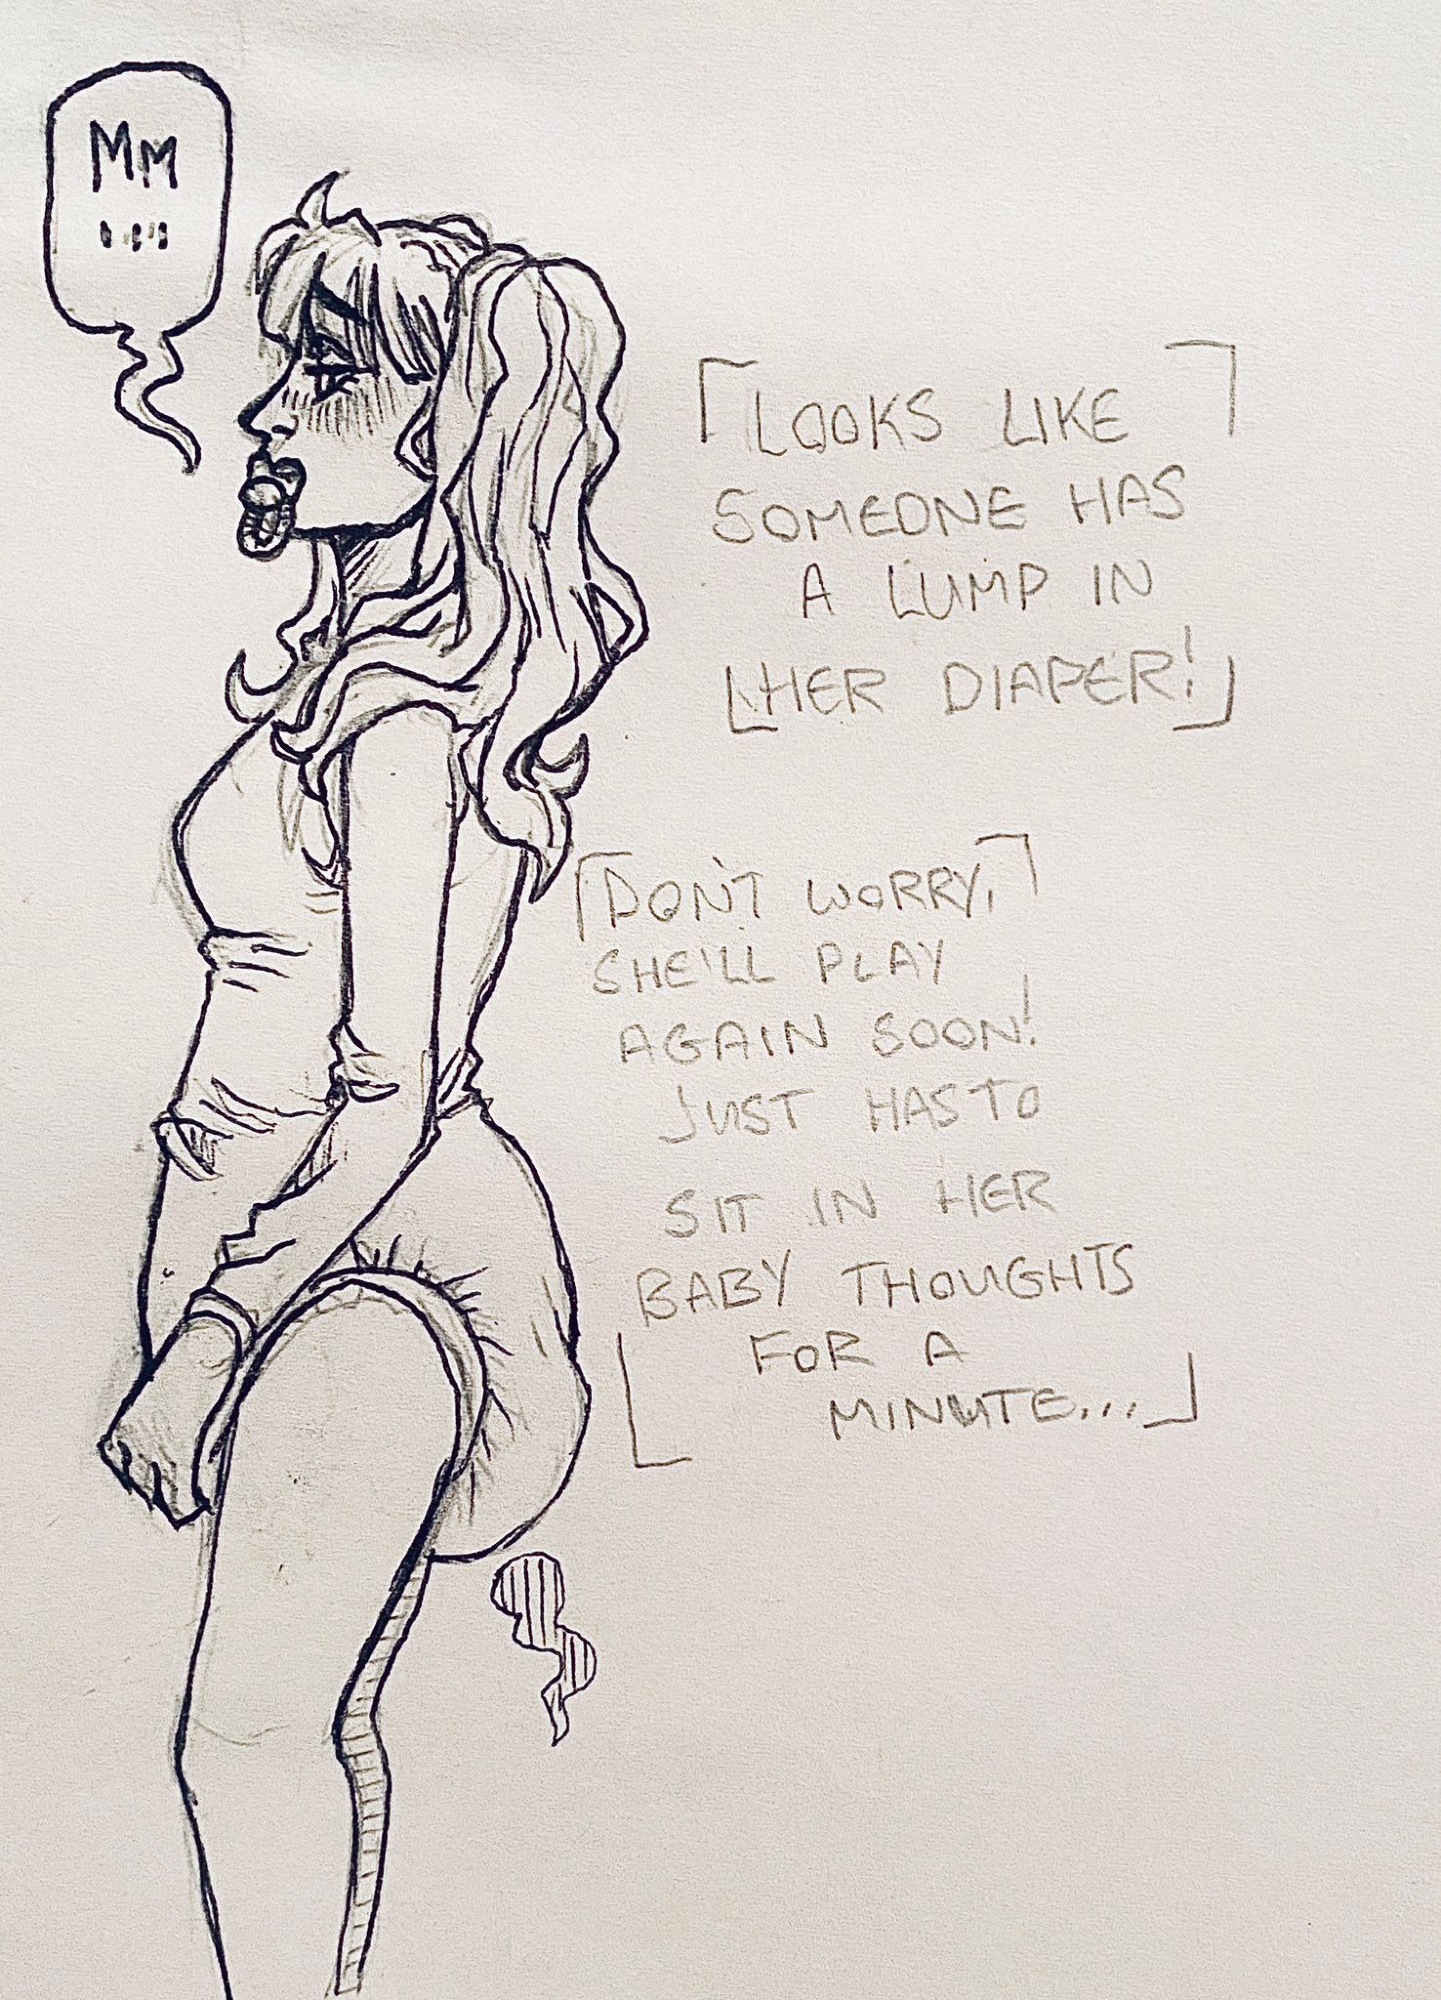 MM
....
LOOKS LIKE
SOMEONE HAS
A LUMP IN
HER DIAPER!
DON'T WORRY,
SHE'LL PLAY
AGAIN SOON!
JUST HAS TO
SIT IN HER
BABY THOUGHTS
FOR A
MINUTE...